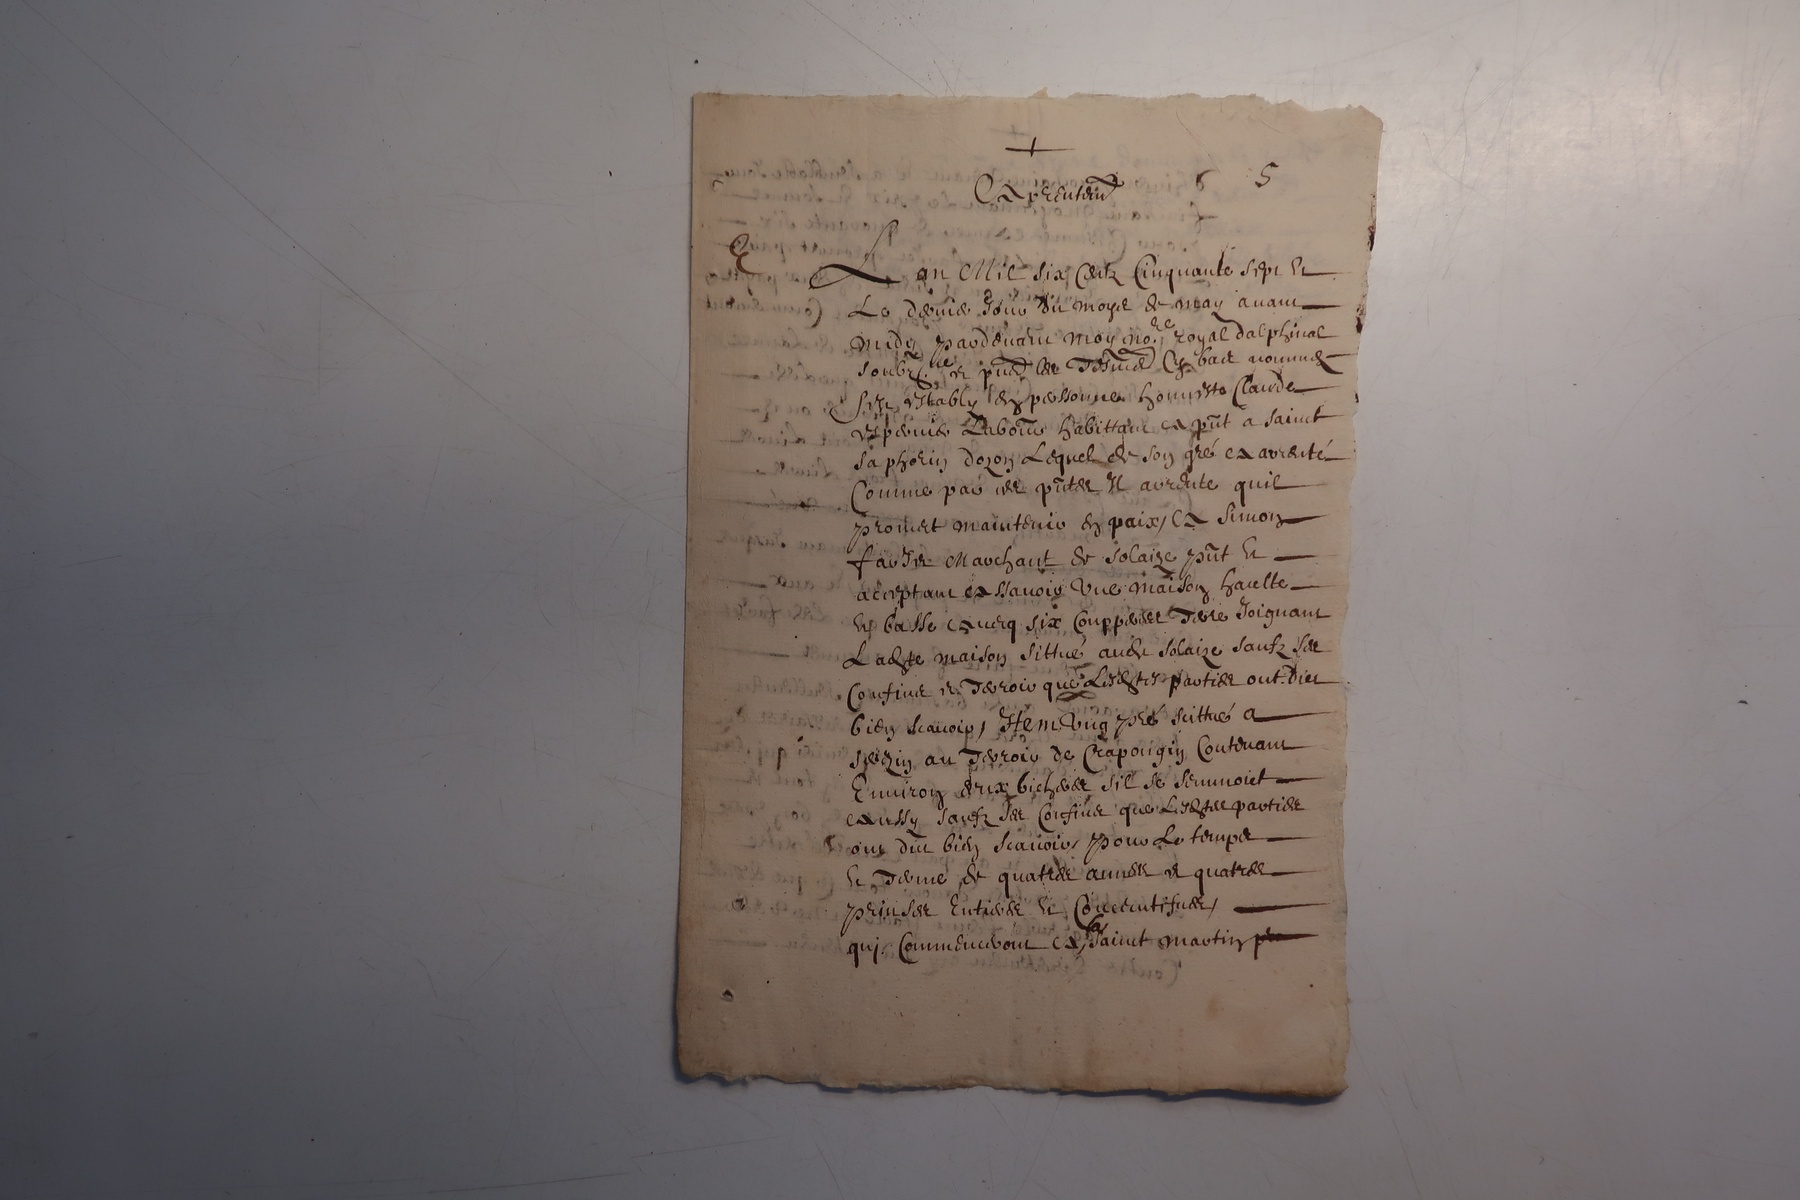 +
5
Larrentem
Lan Mil six Centz Cinquante sept et
Le dernier Jour du moys de may avant
midy pardevant moy no.re royal dalphinal
soubz.ne et pntz les tesmoe
sest estably en personne honneste Claude
Laboure habittant a pnt a saint
saphorin dozon Lequel de son gré a arrenté
Comme par ces pntes Il arrente quil
promect maintenir en paix, a simon
marchant de solaize pnt et
acceptant assavoir une maison haulte
et basse avecq six Couppees terre Joignant
Ladte maison sittué aud solaize saufz ses
Confins et terroir que Lesdtes parties ont dict
bien scavoir, Item ung pré scittué a
serezin au terroir de Contenant
Environ deux bicherees sil se semmoict
aussy saufz ses Confins que Lesdtes parties
ont dict bien scavoir, pour Le temps
et terme de quatres annees et quatres
prinses Entieres et Consecutifves,
qui Commenceront a la saint martin